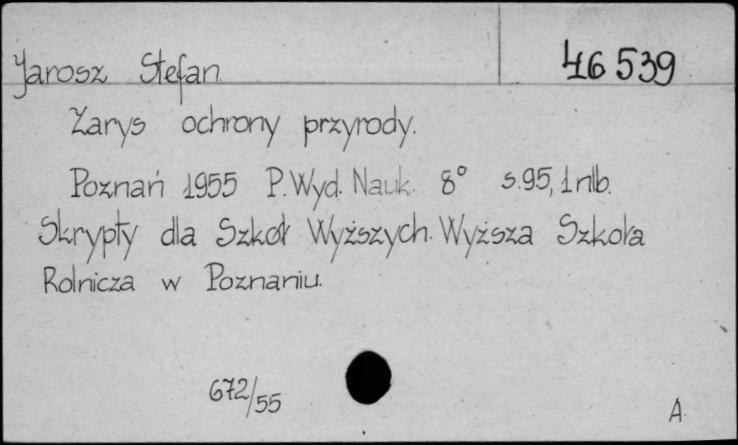 Jarosz Stefan
46539
Zarys ochrony przyrody.
Poznań 1955 P. Wyd. Nauk. 8° s. 95, 1 nlb.
Skrypty dla Szkół Wyższych. Wyższa Szkoła
Rolnicza w Poznaniu.
672/55
A.